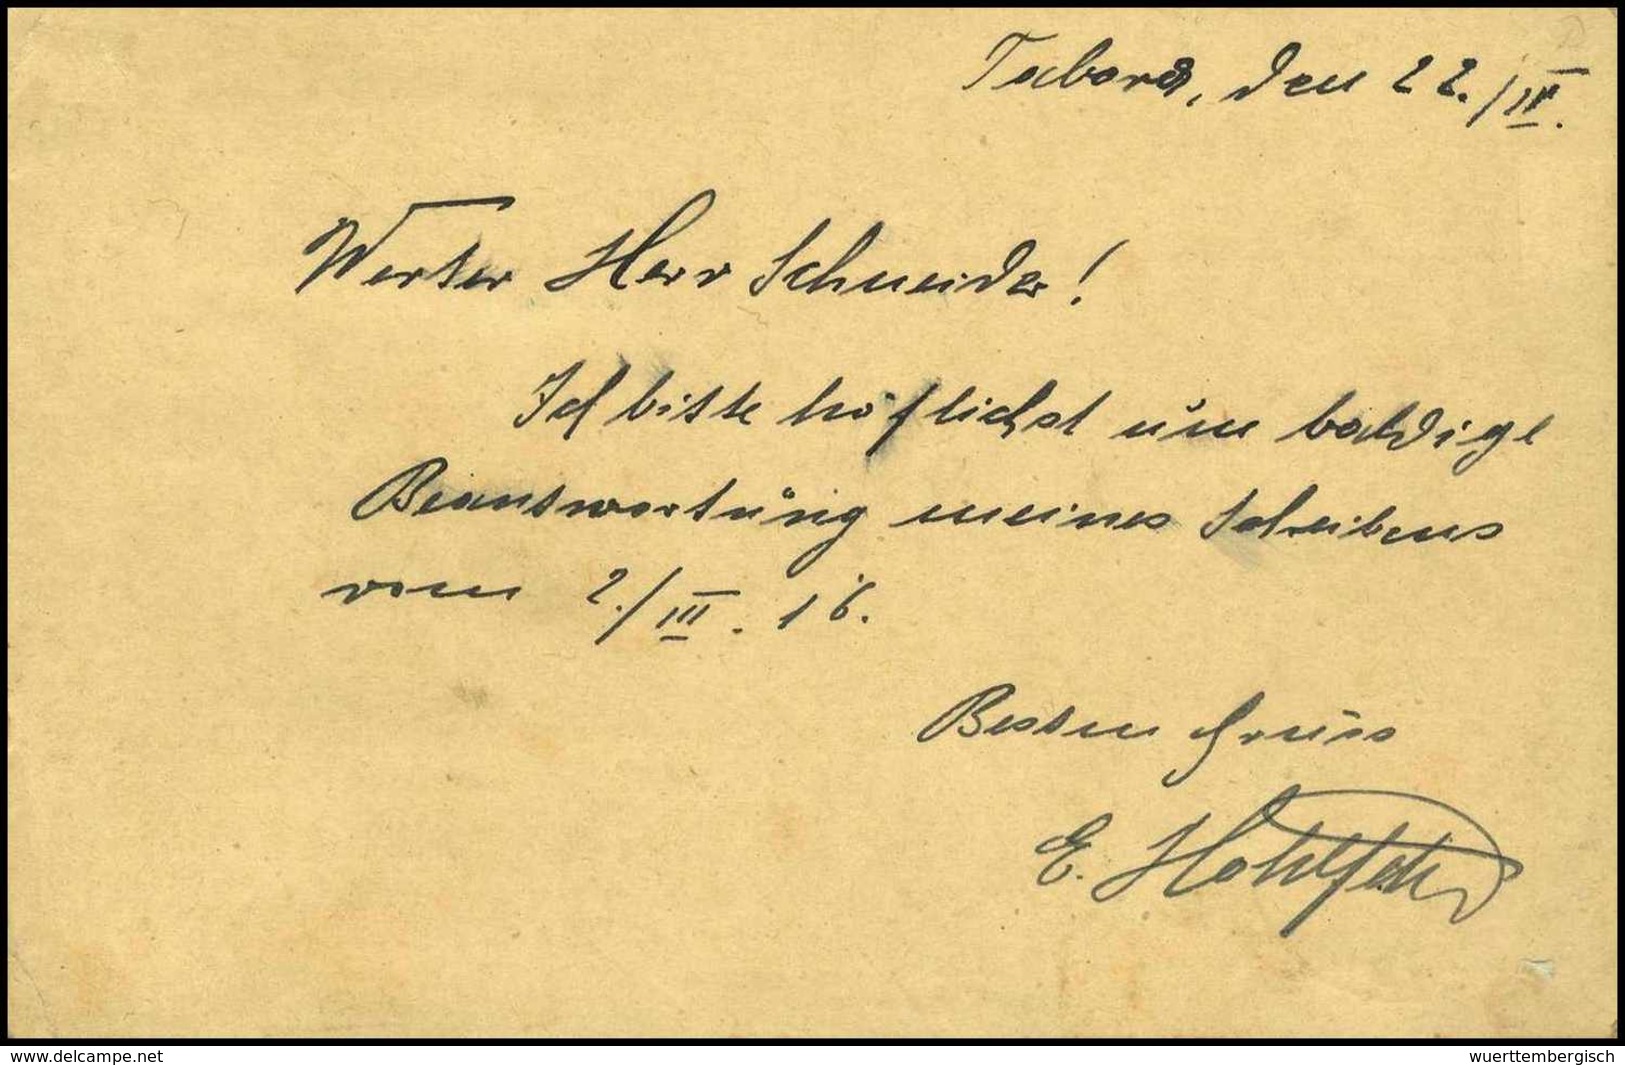 Tabora, den 22./IV.
Werter Herr Schneider!
Ich bitte höflichst um baldige
Beantwortung meines Schreibens
vom 2./III. 16.
Besten Gruss
E. Hohlfeld
www.delcampe.net
wuerttembergisch